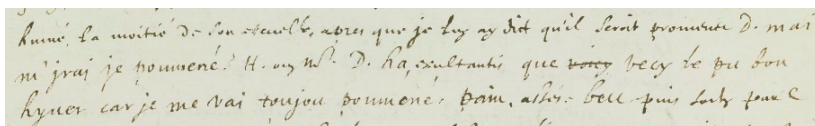 humé, la moitié de son escuelle, apres que je luy ay dict qu'il seroit proumené D. mai
m'jrai je poumené? H. ouy Mr. D. ha, exultantis que voicy vecy le pu bon
hyver car je me vai toujou poumené: pain, assés- beu puis sorty pour